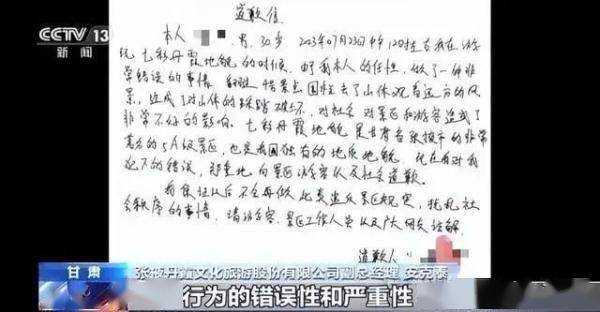 CCTV 13
新闻
道歉信
本人 男，30岁 2023年07月23日中午12时左右我在游
玩七彩丹霞地貌的时候，由于我本人的任性，做了一件非
常错误的事情 翻越 景点围栏去了山体观看远方的风
景，造成了对山体的踩踏破坏，对社会 对景区和游客造成了
非常不好的影响。七彩丹霞地貌是甘肃省张掖市的非常
著名的5A级景区，也是我国独有的地质地貌 现在我对我
犯下的错误，郑重地向景区游客以及社会道歉。
我保证以后不会再做此类违反景区规定，扰乱社
会秩序的事情，请游客，景区工作人员以及广大网友谅解
道歉人：
甘肃
张掖丹霞文化旅游股份有限公司副总经理 安克泰
行为的错误性和严重性